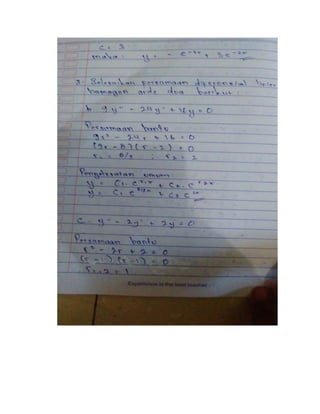 C = 3
maka : y = - e⁻³ˣ + 3e⁻²ˣ
3. Selesaikan persamaan diferensial linier
homogen orde dua berikut :
b. 9y'' - 24y' + 16y = 0
Persamaan bantu
9r² - 24r + 16 = 0
(9r - 8)(r - 2) = 0
r₁ = 8/9 ; r₂ = 2
Penyelesaian umum
y = C₁.e^r₁x + C₂.e^r₂x
y = C₁ e^8/9x + C₂ e^2x
c. y'' - 2y' + 2y = 0
Persamaan bantu
r² - 2r + 2 = 0
(r - 1)(r - 1) = 0
Experience is the best teacher